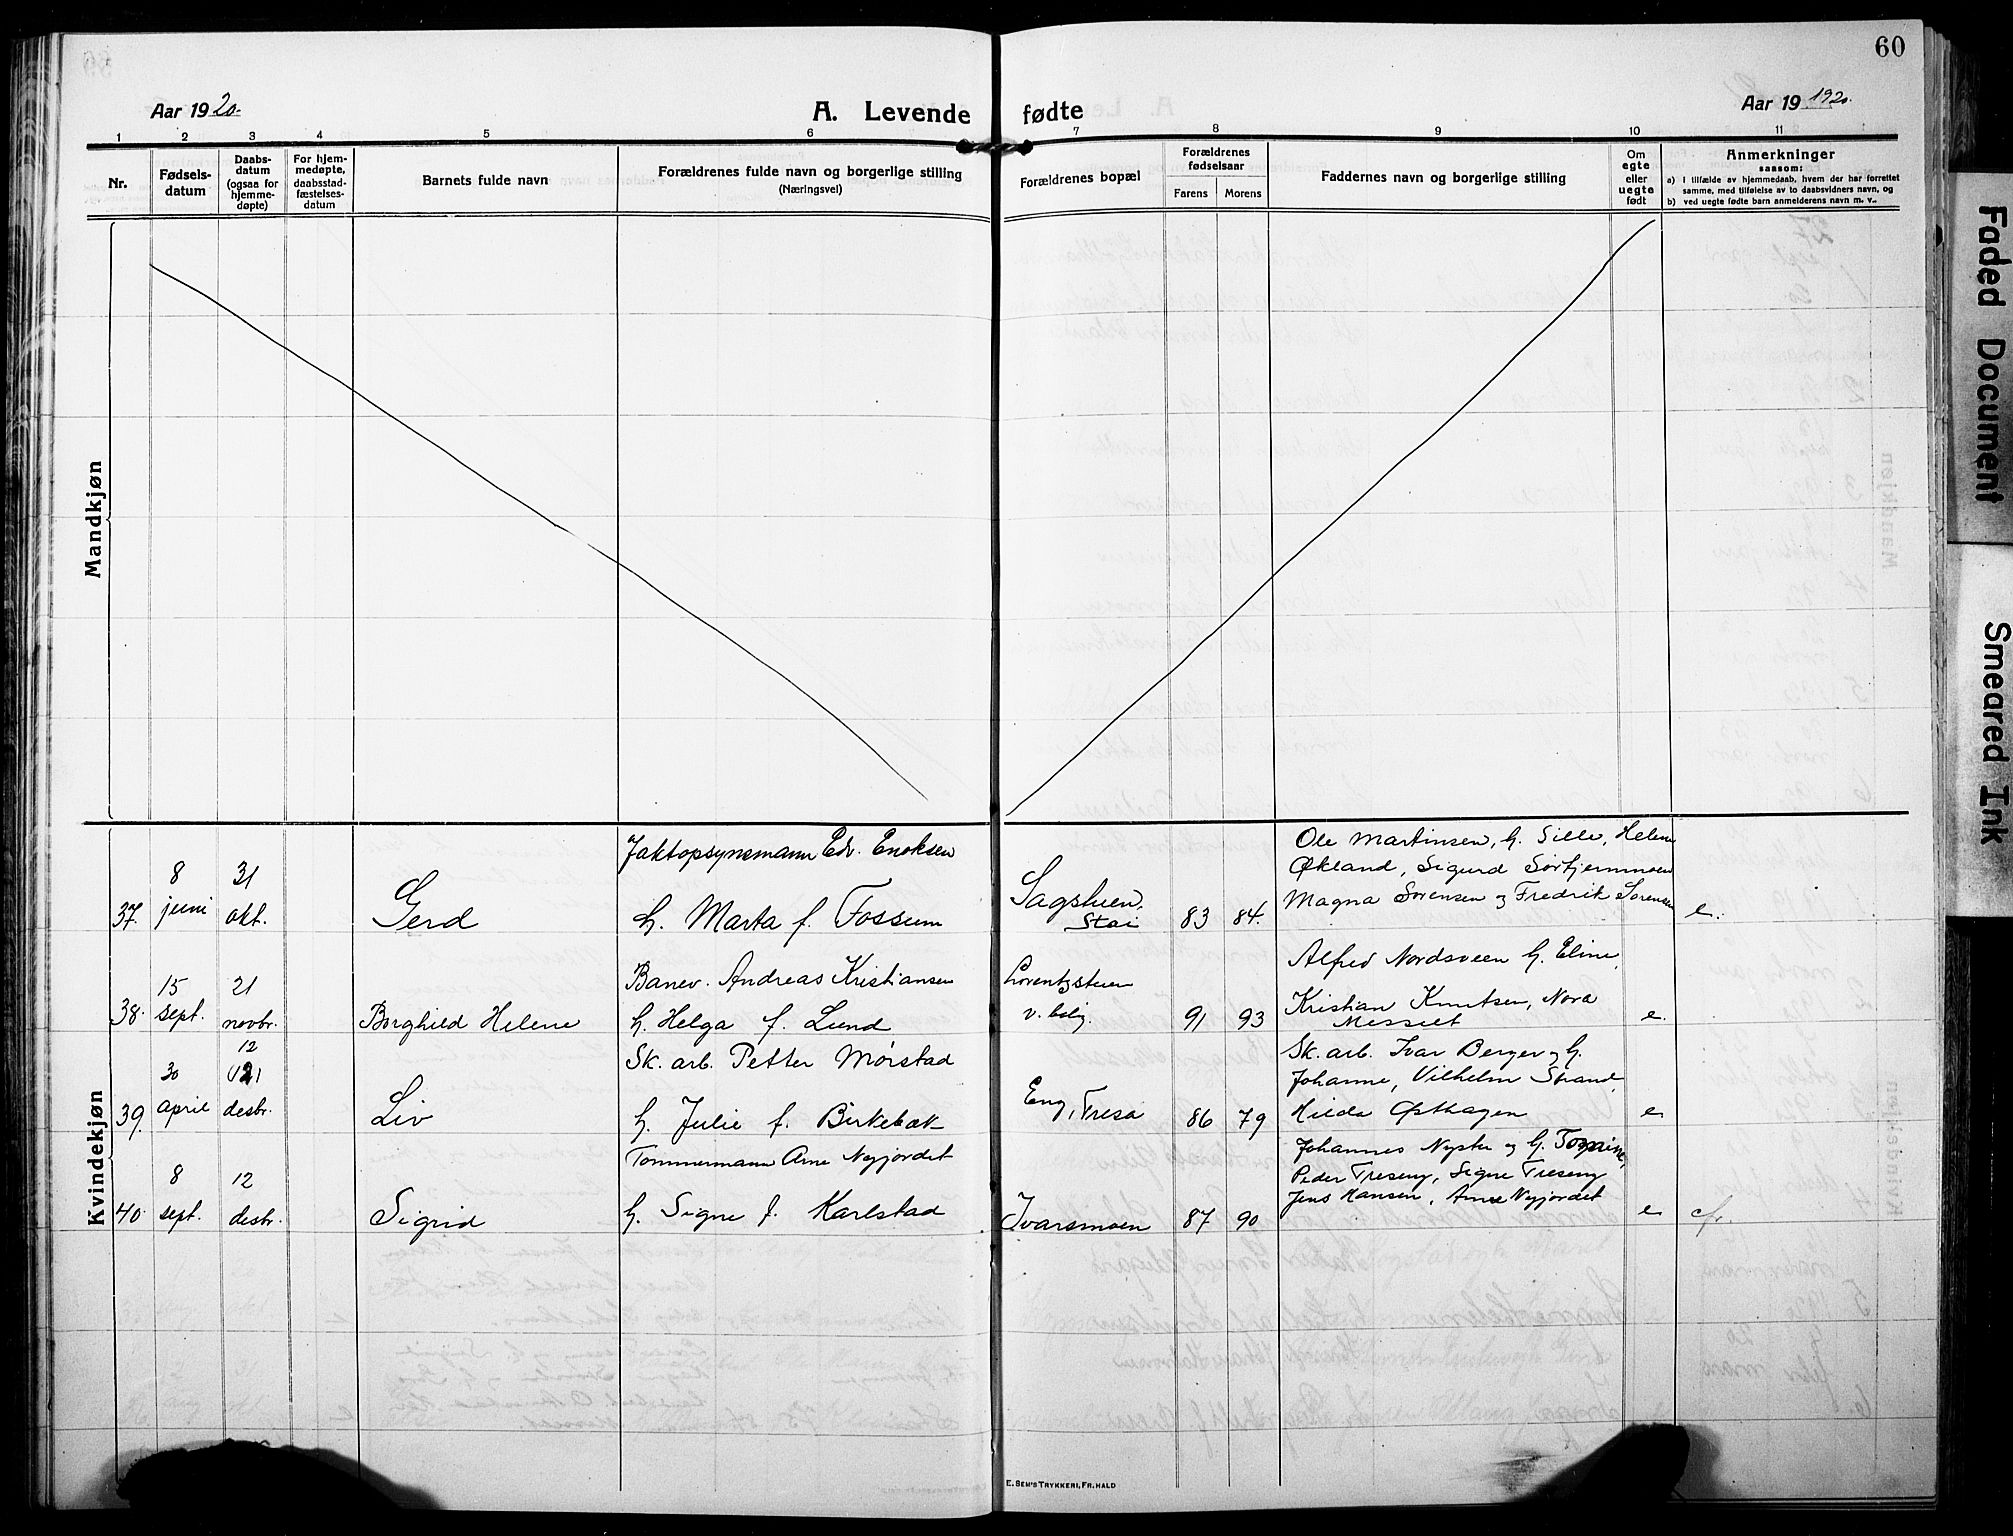 60
Aar 1920.
A. Levende fødte
Aar 19 1920.
1 2 3 4 5 6 7 8 9 10 11
Nr.
Fødsels-
datum
Daabs-
datum
(ogsaa for
hjemme-
døpte)
For hjem-
medøpte,
daabsstad-
fæstelses-
datum
Barnets fulde navn
Forældrenes fulde navn og borgerlige stilling
(Næringsvei)
Forældrenes bopæl
Forældrenes
fødselsaar
Farens Morens
Faddernes navn og borgerlige stilling
Om
egte
eller
uegte
født
Anmerkninger
saasom:
a) i tilfælde av hjemmedaab, hvem der har forrettet
samme, med tilføielse av to daabsvidners navn, og
b) ved uegte fødte barn anmelderens navn m. v.
Mandkjøn
Kvindekjøn
37. 8 juni 31 okt. Gerd
Jaktopsynsmann Edv. Enoksen
h. Marta f. Fossum
Sagstuen,
Stai
83 84.
Ole Martinsen, h. Sille, Helene
Økland, Sigurd Sørfjernmoen
Magna Sørensen og Fredrik Sørensen
e.
38. 15 sept. 21 novbr. Borghild Helene
Banev. Andreas Kristiansen
h. Helga f. Lund
Lorentzstuen
v. bolig.
91 93
Alfred Nordsveen h. Eline,
Kristian Knutsen, Nora
Messelt
e.
39. 30 april 12 desbr. Liv
Sk. arb. Petter Mørstad
h. Julie f. Birkebæk
Eng, Treså
86 79
Sk. arb. Ivar Berger og h.
Johanne, Vilhelm Strand,
Hilda Østhagen
e
40. 8 sept. 12 desbr. Sigrid
Tømmermann Arne Nyjordet
h. Signe f. Karlstad
Ivarsmoen
87 90
Johannes Nystu og h.
Peder Treseng, Signe Treseng
Jens Hansen, Arne Nyjordet
e cfr.
E. SEM'S TRYKKERI, FR.HALD
Faded Document
Smeared Ink